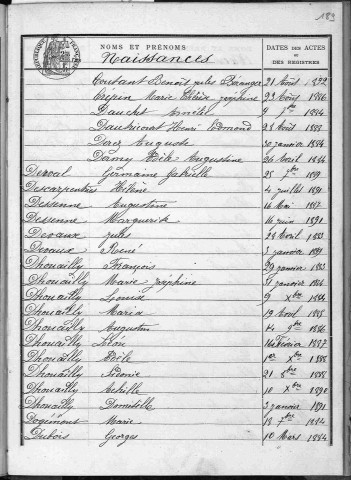 183
RÉPUBLIQUE FRANÇAISE
NOMS ET PRÉNOMS
DATES DES ACTES
ET
DES REGISTRES
Naissances
Coutant Benoît Jules Béranger 21 Août 1892
Crépin Marie Joséphine 23 Août 1886
Dauchet 9 1884
Dautricourt Henri Edmond 23 Août 1888
Auguste 30 janvier 1884
Damy Augustine 26 Août 1884
Dercal Germaine Gabrielle 25 1889
Descarpentries Hélène 4 juillet 1891
Dessenne Augustine 16 Mai 1887
Dessenne Marguerite 16 juin 1891
Devaux Jules 28 Avril 1883
Devaux René 3 janvier 1891
Dhouailly François 29 janvier 1883
Dhouailly Marie Joséphine 31 janvier 1884
Dhouailly Louise 9 Xbre 1884
Dhouailly Maria 19 Avril 1885
Dhouailly Augustin 14 9bre 1886
Dhouailly Léon 14 Février 1887
Dhouailly 1er Xbre 1888
Dhouailly 21 8bre 1888
Dhouailly Achille 10 Xbre 1890
Dhouailly Domitille 3 janvier 1891
Dogimont Marie 18 7bre 1884
Dubois Georges 10 Mars 1884